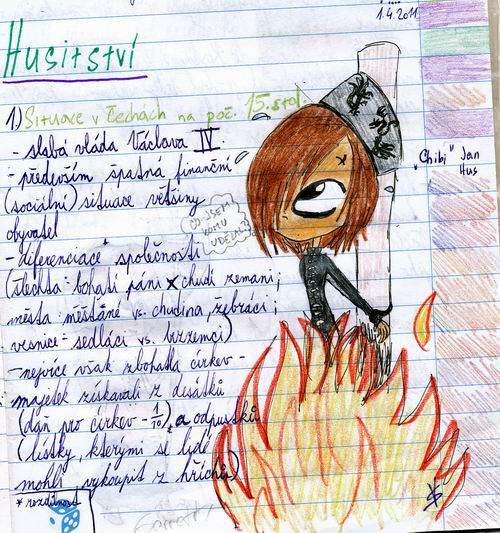 1.4.2011
Husitství
1) Situace v Čechách na poč. 15. stol.
- slabá vláda Václava IV.
- především špatná finanční
(sociální) situace většiny
obyvatel
- diferenciace* společnosti
(šlechta: bohatí páni x chudí zemani;
města: měšťané vs. chudina, žebráci;
vesnice - sedláci vs. bezzemci)
- nejvíce však zbohatla církev -
majetek získávali z desátků
(daň pro církev - 1/10), a odpustků
(lístky, kterými se lidé
mohli vykoupit z hříchů)
* rozdílnost
CO JSEM
KOMU
UDĚLAL?
"Chibi" Jan
Hus